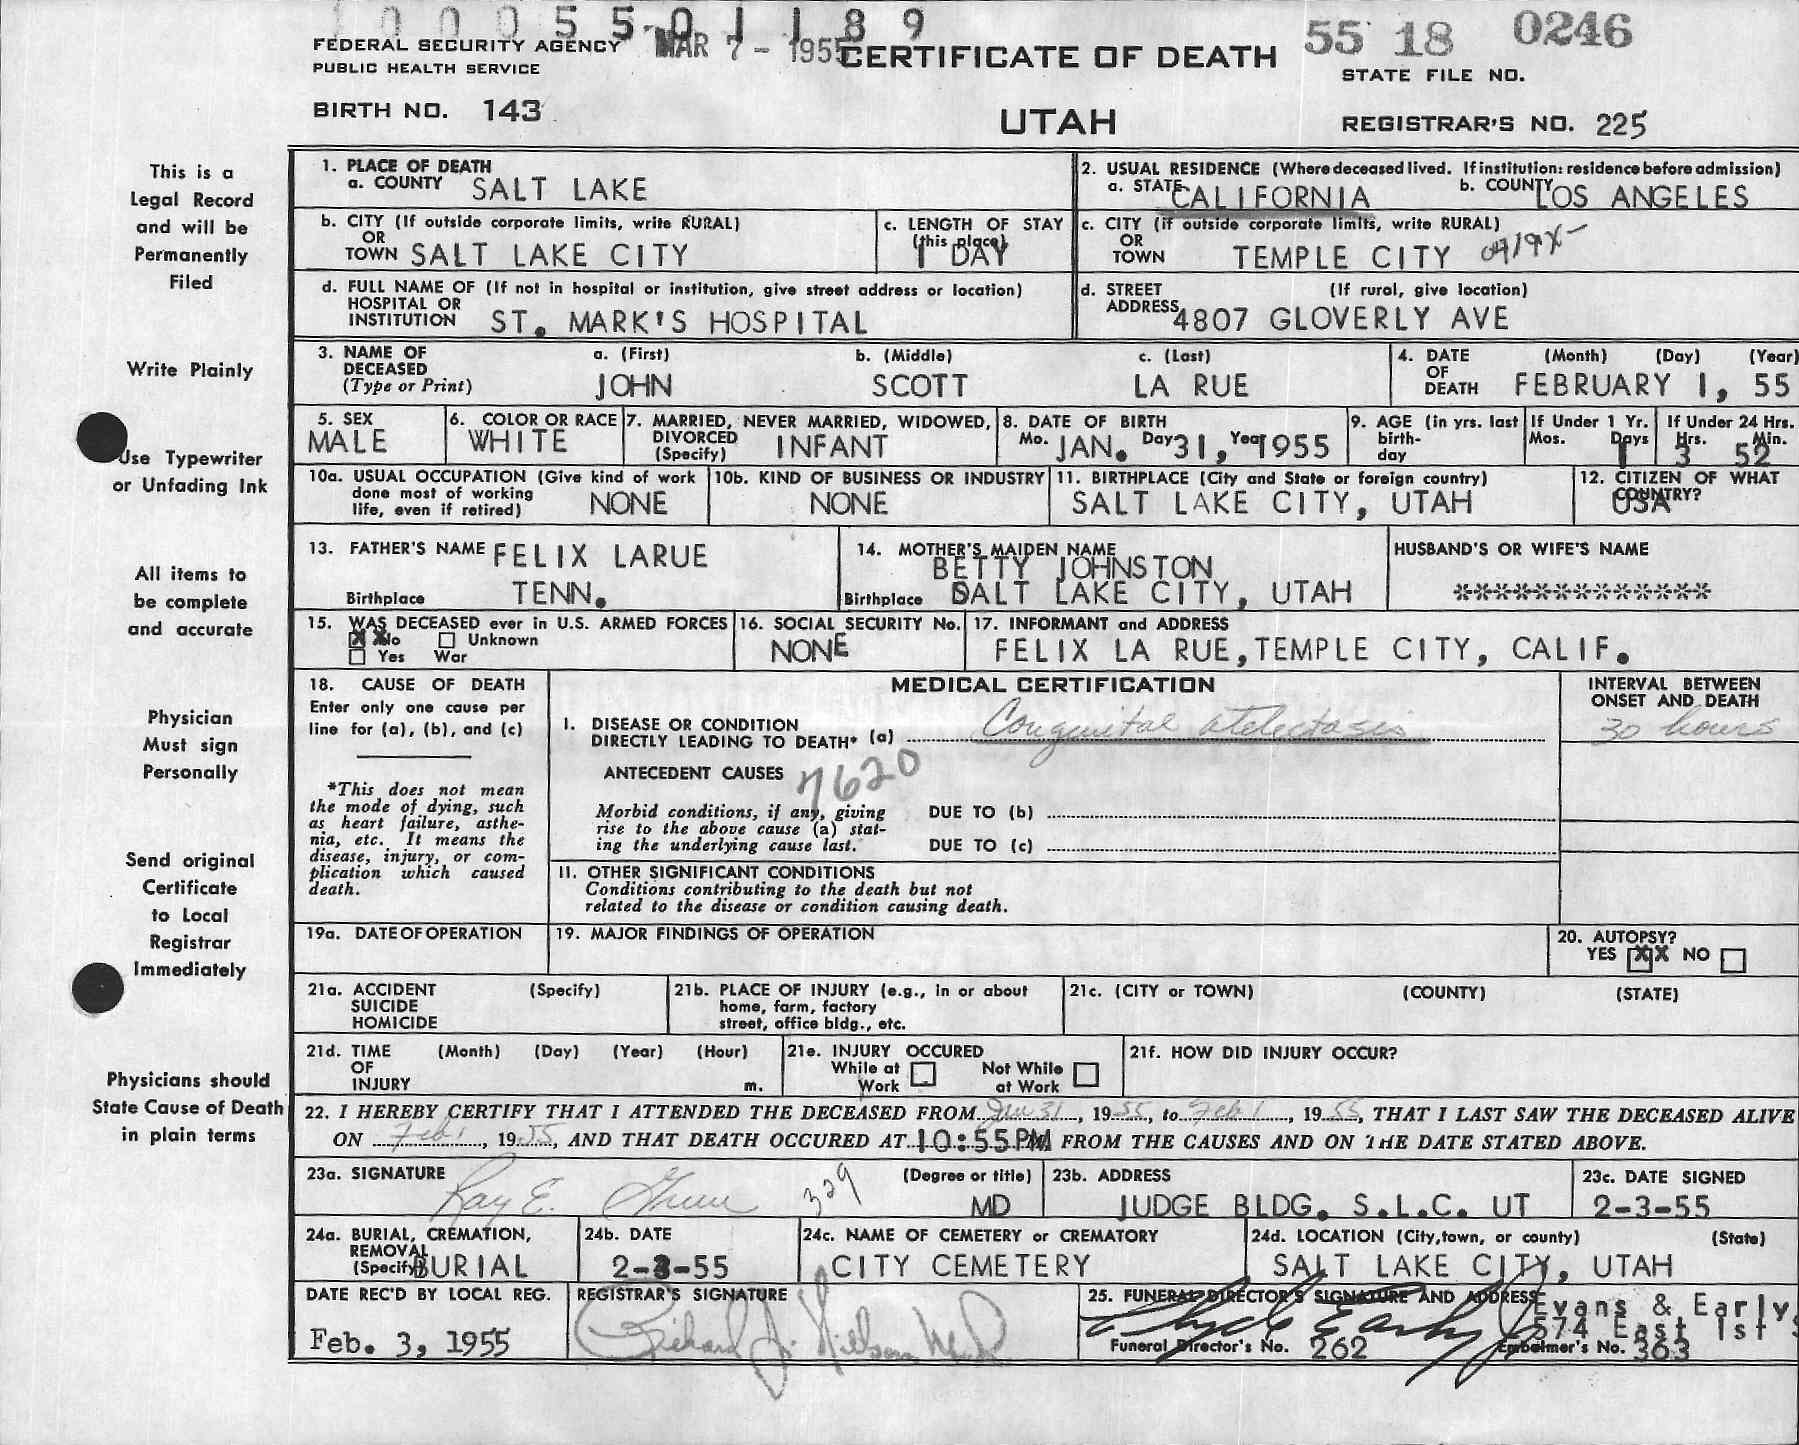 1 0 0 0 5 5 0 1 1 8 9
FEDERAL SECURITY AGENCY MAR 7 - 1955 CERTIFICATE OF DEATH 55 18 0246
PUBLIC HEALTH SERVICE STATE FILE NO.
BIRTH NO. 143 UTAH REGISTRAR'S NO. 225
This is a
Legal Record
and will be
Permanently
Filed
Write Plainly
Use Typewriter
or Unfading Ink
All items to
be complete
and accurate
Physician
Must sign
Personally
Send original
Certificate
to Local
Registrar
Immediately
Physicians should
State Cause of Death
in plain terms
1. PLACE OF DEATH
a. COUNTY SALT LAKE
2. USUAL RESIDENCE (Where deceased lived. If institution: residence before admission)
a. STATE CALIFORNIA b. COUNTY LOS ANGELES
b. CITY (If outside corporate limits, write RURAL)
OR
TOWN SALT LAKE CITY
c. LENGTH OF STAY
(this place)
1 DAY
c. CITY (if outside corporate limits, write RURAL)
OR
TOWN TEMPLE CITY
d. FULL NAME OF (If not in hospital or institution, give street address or location)
HOSPITAL OR
INSTITUTION ST. MARK'S HOSPITAL
d. STREET (If rural, give location)
ADDRESS 4807 GLOVERLY AVE
3. NAME OF
DECEASED
(Type or Print)
a. (First) b. (Middle) c. (Last)
JOHN SCOTT LA RUE
4. DATE (Month) (Day) (Year)
OF
DEATH FEBRUARY 1, 55
5. SEX
MALE
6. COLOR OR RACE
WHITE
7. MARRIED, NEVER MARRIED, WIDOWED,
DIVORCED
(Specify) INFANT
8. DATE OF BIRTH
Mo. JAN. Day 31, Year 1955
9. AGE (in yrs. last
birth-
day
If Under 1 Yr.
Mos. Days
1
If Under 24 Hrs.
Hrs. Min.
3 52
10a. USUAL OCCUPATION (Give kind of work
done most of working
life, even if retired) NONE
10b. KIND OF BUSINESS OR INDUSTRY
NONE
11. BIRTHPLACE (City and State or foreign country)
SALT LAKE CITY, UTAH
12. CITIZEN OF WHAT
COUNTRY?
USA
13. FATHER'S NAME FELIX LARUE
Birthplace TENN.
14. MOTHER'S MAIDEN NAME
BETTY JOHNSTON
Birthplace SALT LAKE CITY, UTAH
HUSBAND'S OR WIFE'S NAME
*************
15. WAS DECEASED ever in U.S. ARMED FORCES
XX No Unknown
Yes War
16. SOCIAL SECURITY No.
NONE
17. INFORMANT and ADDRESS
FELIX LA RUE, TEMPLE CITY, CALIF.
18. CAUSE OF DEATH
Enter only one cause per
line for (a), (b), and (c)
*This does not mean
the mode of dying, such
as heart failure, asthe-
nia, etc. It means the
disease, injury, or com-
plication which caused
death.
MEDICAL CERTIFICATION
I. DISEASE OR CONDITION
DIRECTLY LEADING TO DEATH* (a) Congenital atelectasis
ANTECEDENT CAUSES 7620
Morbid conditions, if any, giving
rise to the above cause (a) stat-
ing the underlying cause last.
DUE TO (b)
DUE TO (c)
INTERVAL BETWEEN
ONSET AND DEATH
30 hours
11. OTHER SIGNIFICANT CONDITIONS
Conditions contributing to the death but not
related to the disease or condition causing death.
19a. DATE OF OPERATION
19. MAJOR FINDINGS OF OPERATION
20. AUTOPSY?
YES XX NO
21a. ACCIDENT (Specify)
SUICIDE
HOMICIDE
21b. PLACE OF INJURY (e.g., in or about
home, farm, factory
street, office bldg., etc.
21c. (CITY or TOWN) (COUNTY) (STATE)
21d. TIME (Month) (Day) (Year) (Hour)
OF
INJURY m.
21e. INJURY OCCURED
While at Work Not While at Work
21f. HOW DID INJURY OCCUR?
22. I HEREBY CERTIFY THAT I ATTENDED THE DECEASED FROM Jan 31, 1955, to Feb 1, 1955, THAT I LAST SAW THE DECEASED ALIVE
ON Feb 1, 1955, AND THAT DEATH OCCURED AT 10:55PM FROM THE CAUSES AND ON THE DATE STATED ABOVE.
23a. SIGNATURE (Degree or title)
Ray E. 329 MD
23b. ADDRESS
JUDGE BLDG. S.L.C. UT
23c. DATE SIGNED
2-3-55
24a. BURIAL, CREMATION,
REMOVAL
(Specify) BURIAL
24b. DATE
2-3-55
24c. NAME OF CEMETERY or CREMATORY
CITY CEMETERY
24d. LOCATION (City, town, or county) (State)
SALT LAKE CITY, UTAH
DATE REC'D BY LOCAL REG.
Feb. 3, 1955
REGISTRAR'S SIGNATURE
Richard J. Nilsen M.D.
25. FUNERAL DIRECTOR'S SIGNATURE AND ADDRESS
Evans & Early
574 East 1st S
Funeral Director's No. 262 Embalmer's No. 363